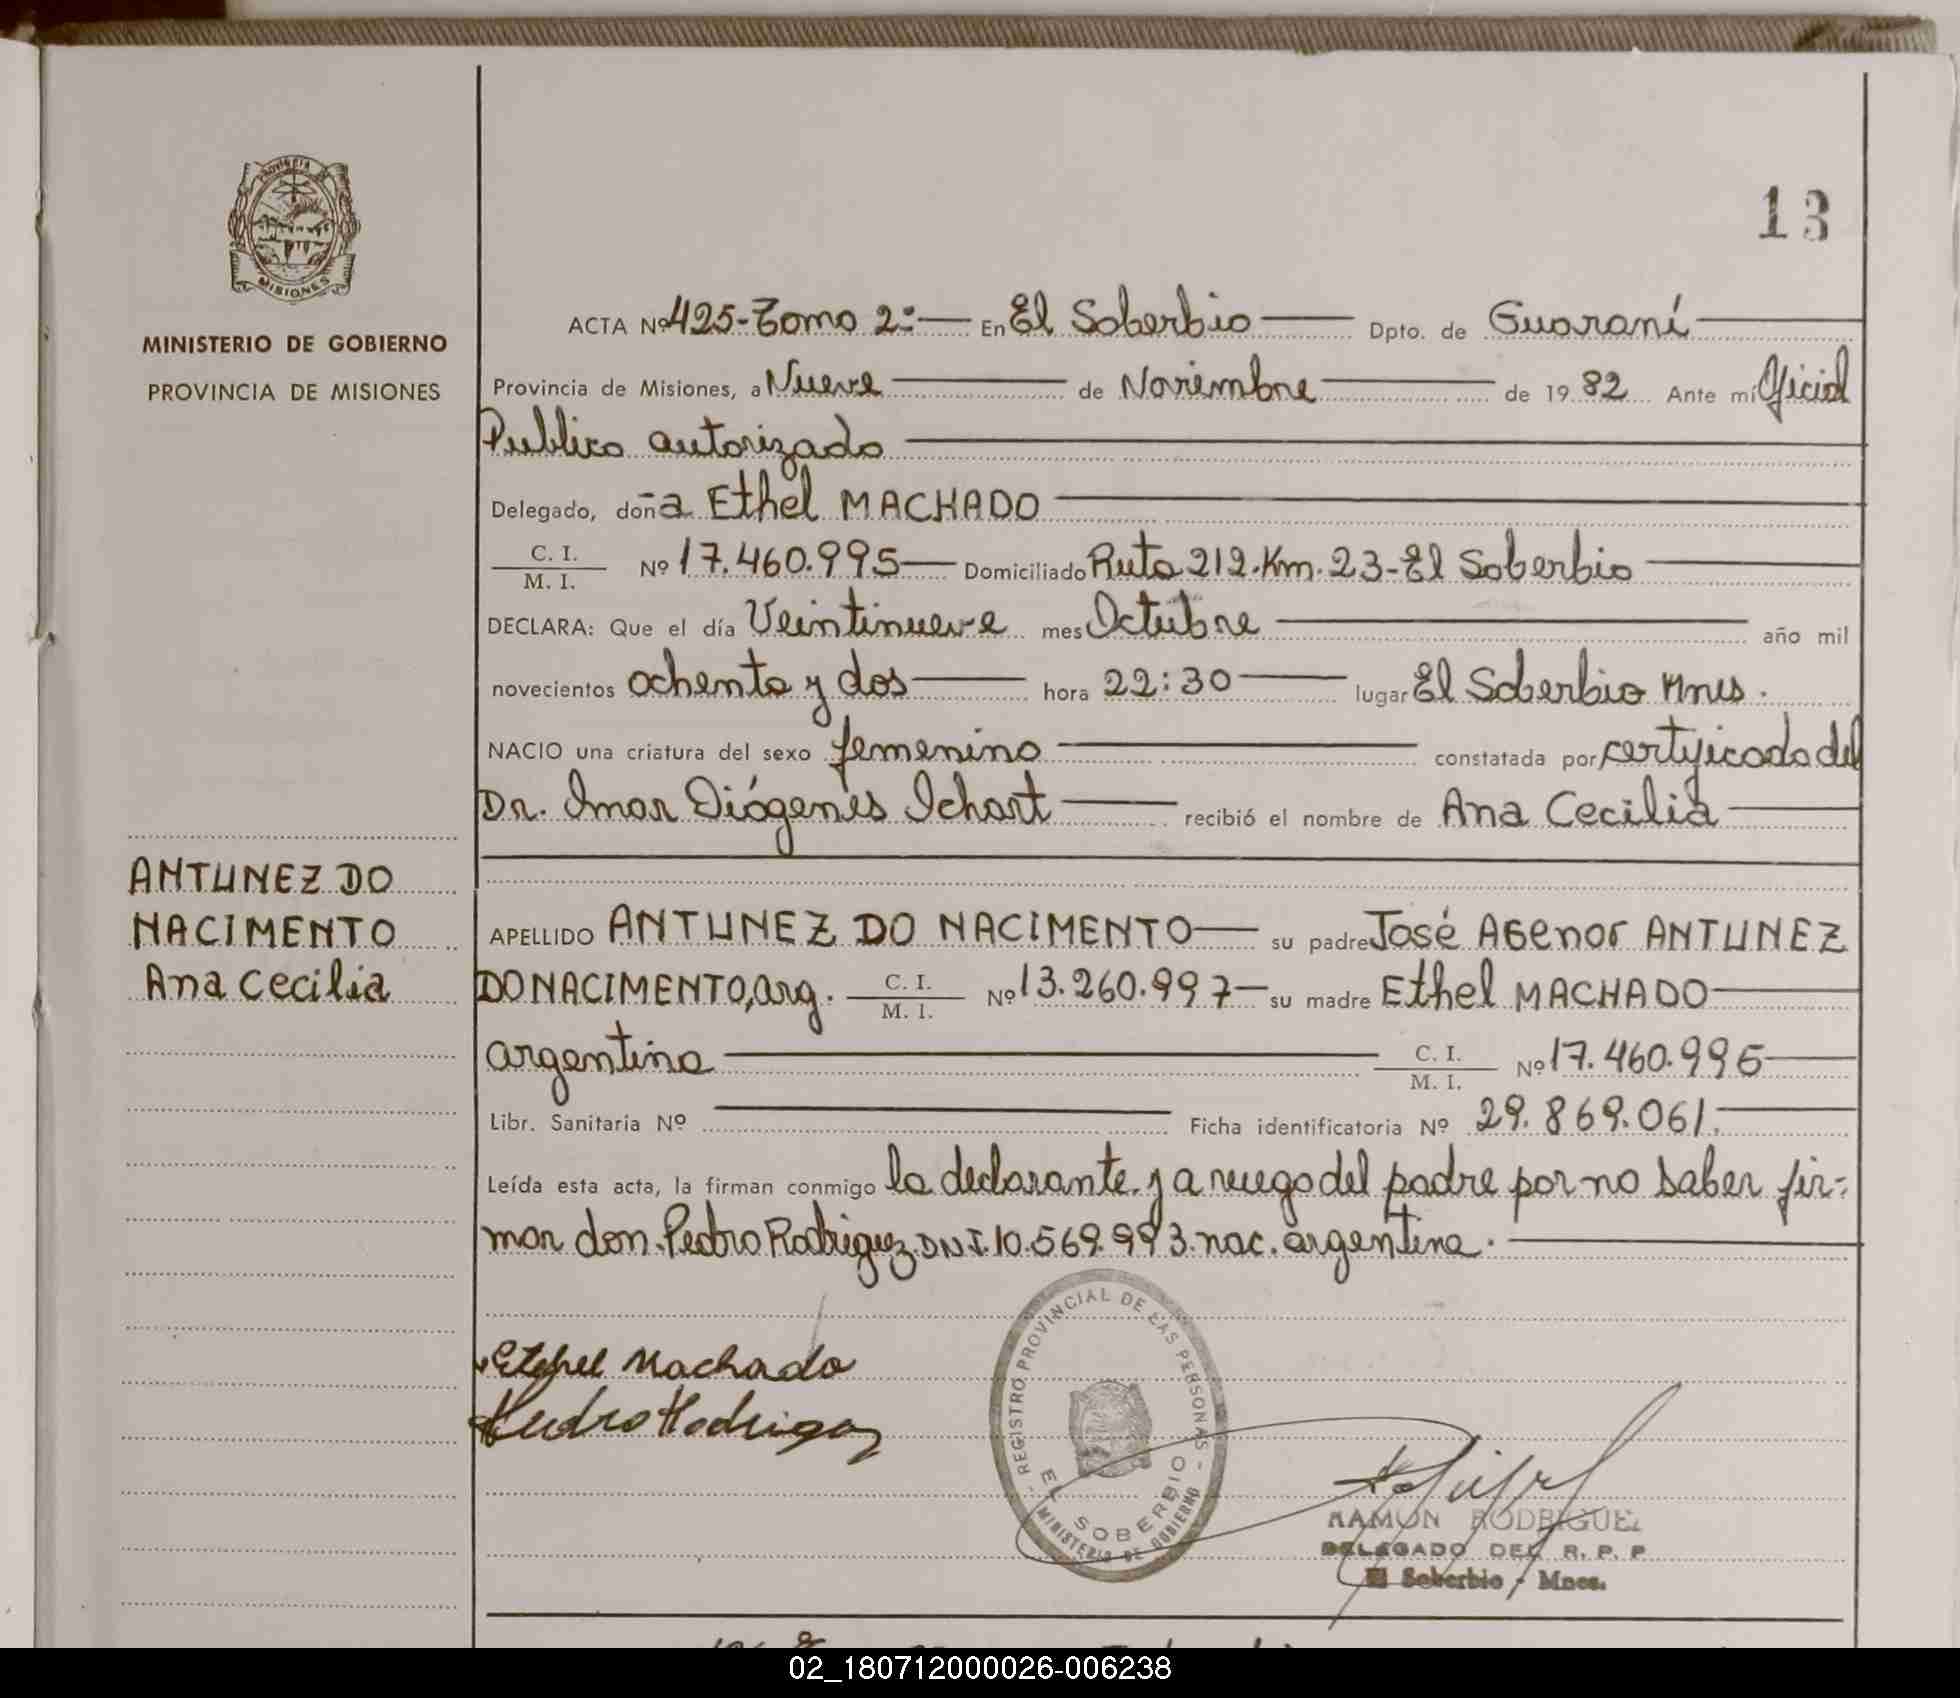 Provincia
MISIONES
MINISTERIO DE GOBIERNO
PROVINCIA DE MISIONES
ANTUNEZ DO
NACIMENTO
Ana Cecilia
13
ACTA Nº 425-Tomo 2º En El Soberbio Dpto. de Guaraní
Provincia de Misiones, a Nueve de Noviembre de 1982 Ante mí Oficial
Publico autorizado
Delegado, doña Ethel MACHADO
C. I. / M. I. Nº 17.460.995 Domiciliado Ruta 212.Km.23-El Soberbio
DECLARA: Que el día Veintinueve mes Octubre año mil
novecientos ochenta y dos hora 22:30 lugar El Soberbio Mnes.
NACIO una criatura del sexo femenino constatada por certificado del
Dr. Imar Diógenes Ichart recibió el nombre de Ana Cecilia
APELLIDO ANTUNEZ DO NACIMENTO su padre José Agenor ANTUNEZ
DO NACIMENTO, arg. C. I. / M. I. Nº 13.260.997 su madre Ethel MACHADO
argentina C. I. / M. I. Nº 17.460.995
Libr. Sanitaria Nº Ficha identificatoria Nº 29.869.061.
Leída esta acta, la firman conmigo la declarante y a ruego del padre por no saber fir-
mar don Pedro Rodriguez DNI.10.569.993.nac.argentina.
Machado
REGISTRO PROVINCIAL DE LAS PERSONAS
EL SOBERBIO
MINISTERIO DE GOBIERNO
RAMON RODRIGUEZ
DELEGADO DEL R. P. P
El Soberbio - Mnes.
02_180712000026-006238